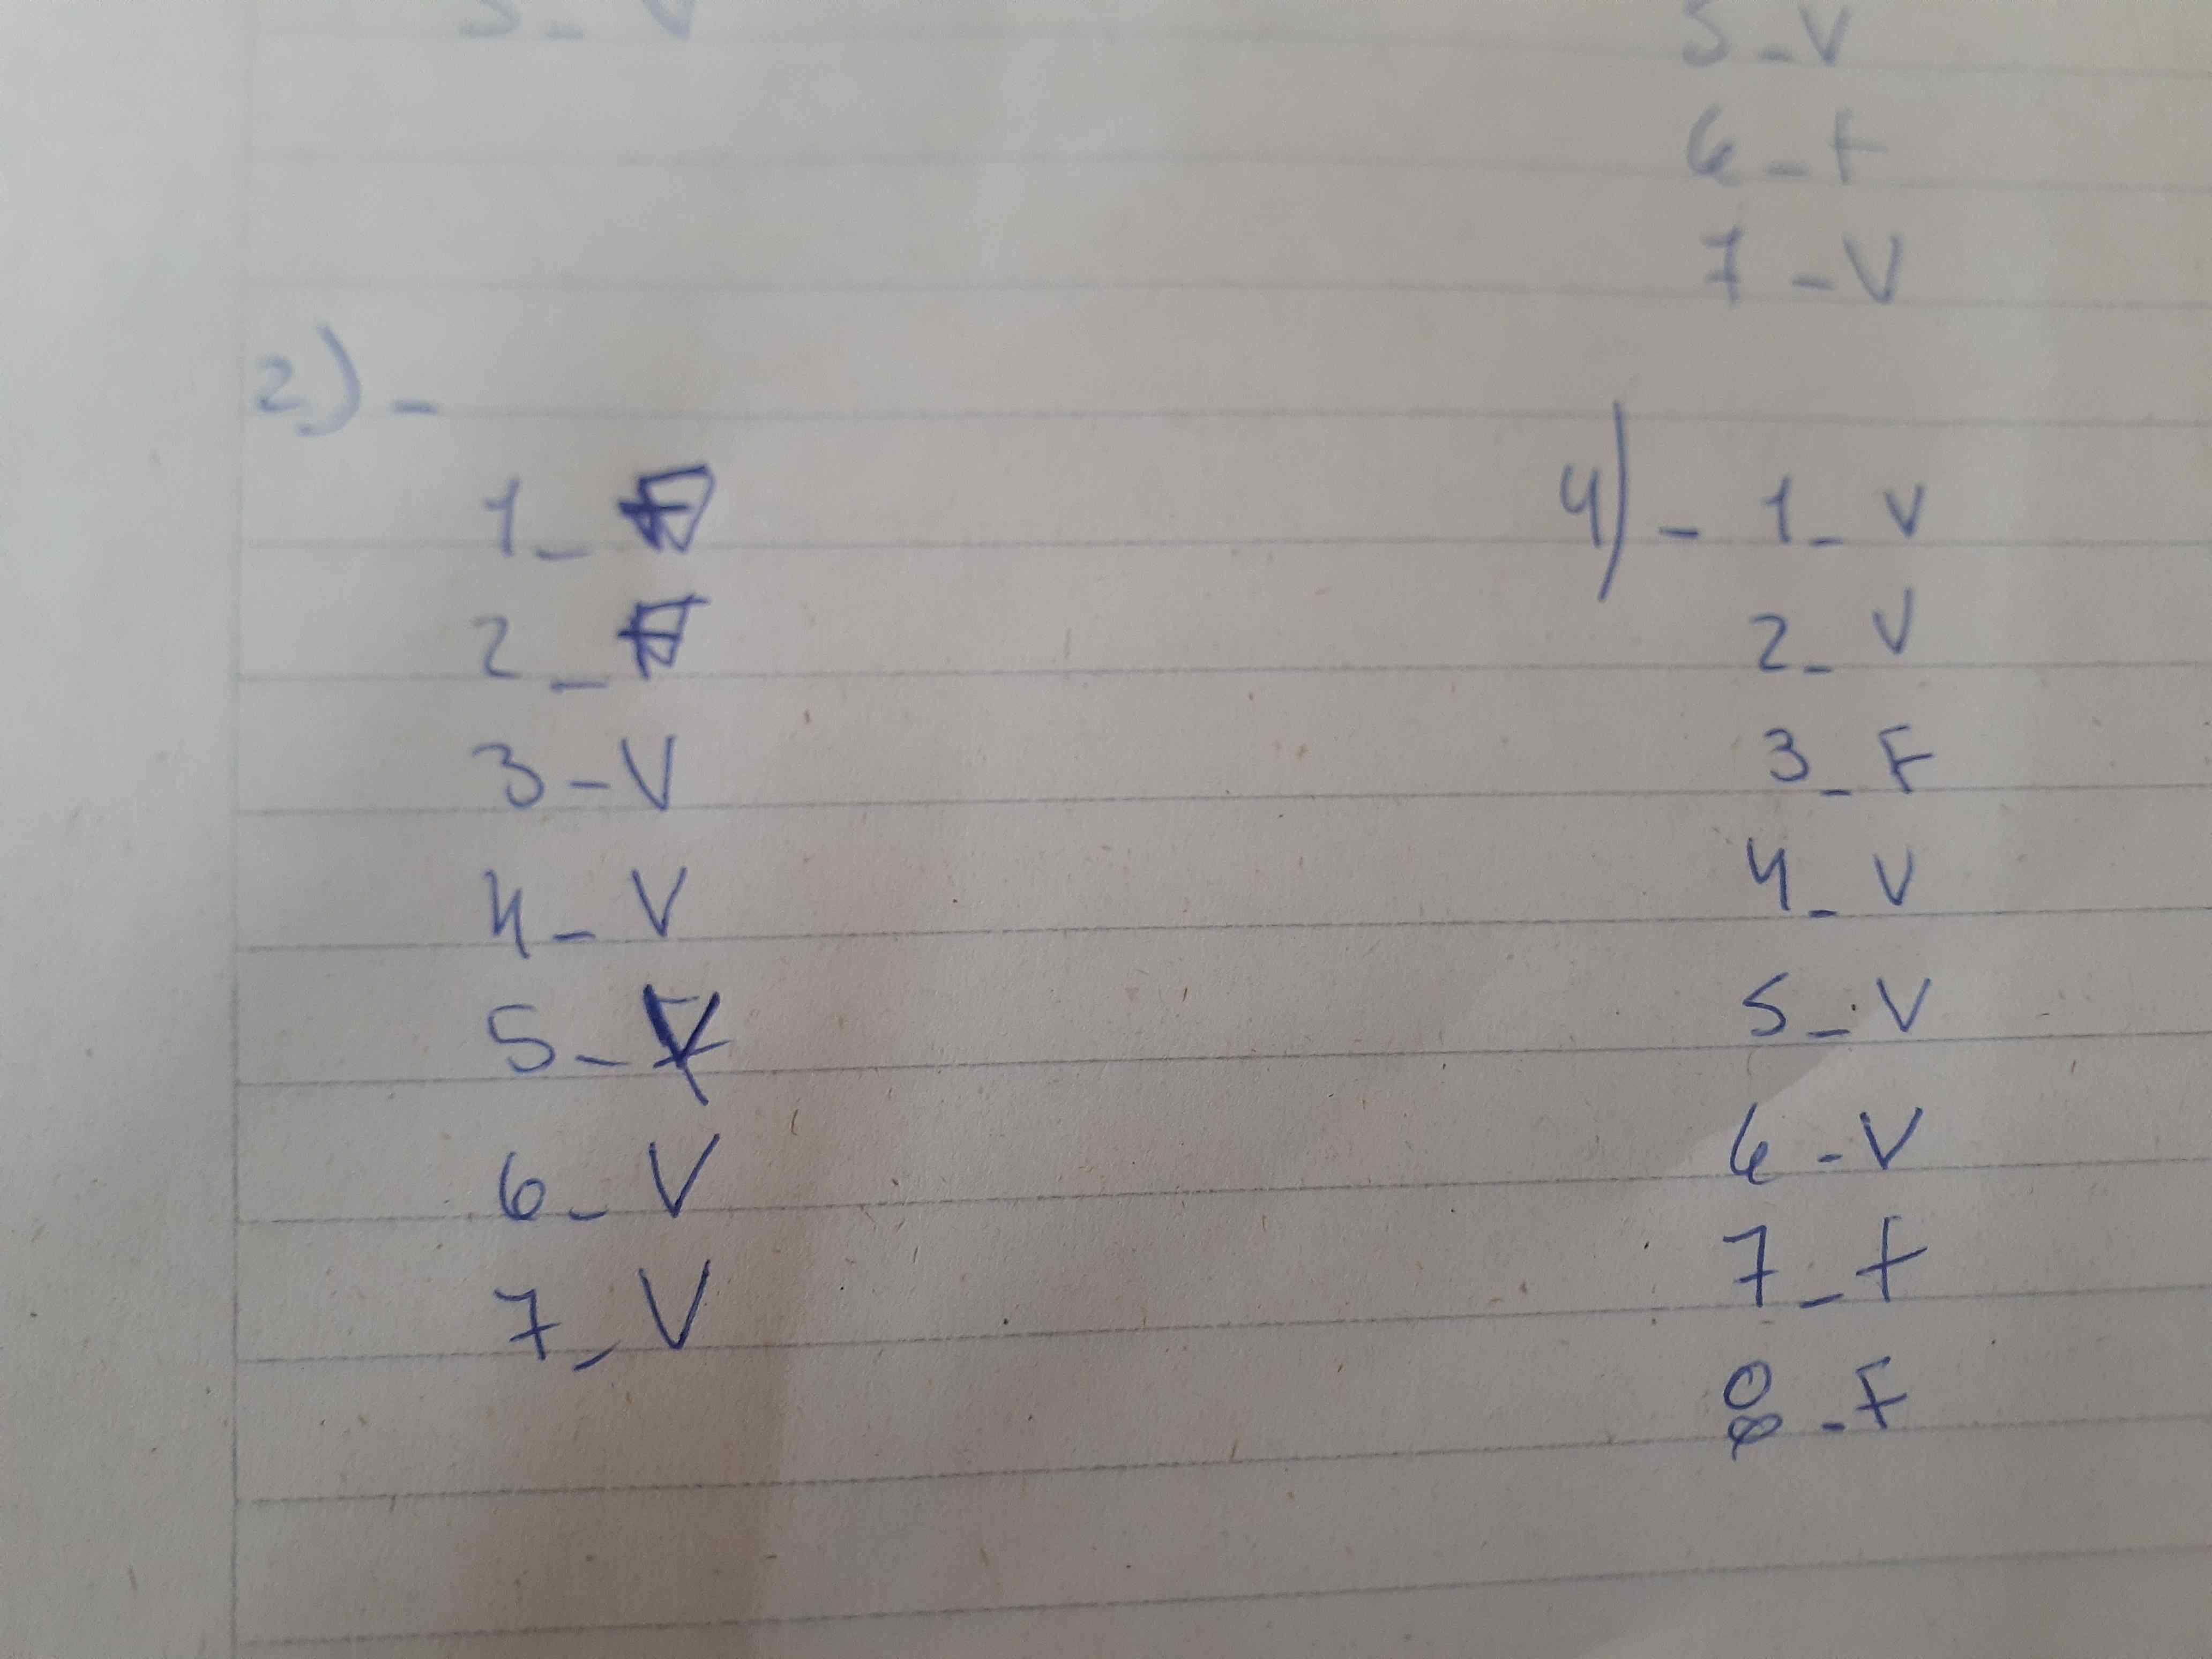 5 - V
5 - V
6 - F
7 - V
2) -
1 - F
2 - F
3 - V
4 - V
5 - V
6 - V
7 - V
4) - 1 - V
2 - V
3 - F
4 - V
5 - V
6 - V
7 - F
8 - F